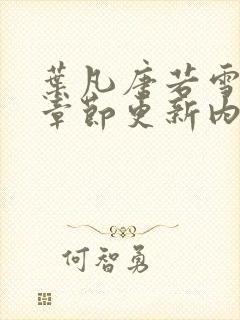 葉凡唐若雪
章節更新內
何智勇